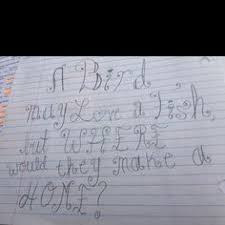 A Bird
may Love a Fish,
but WHERE
would they make a
HOME?